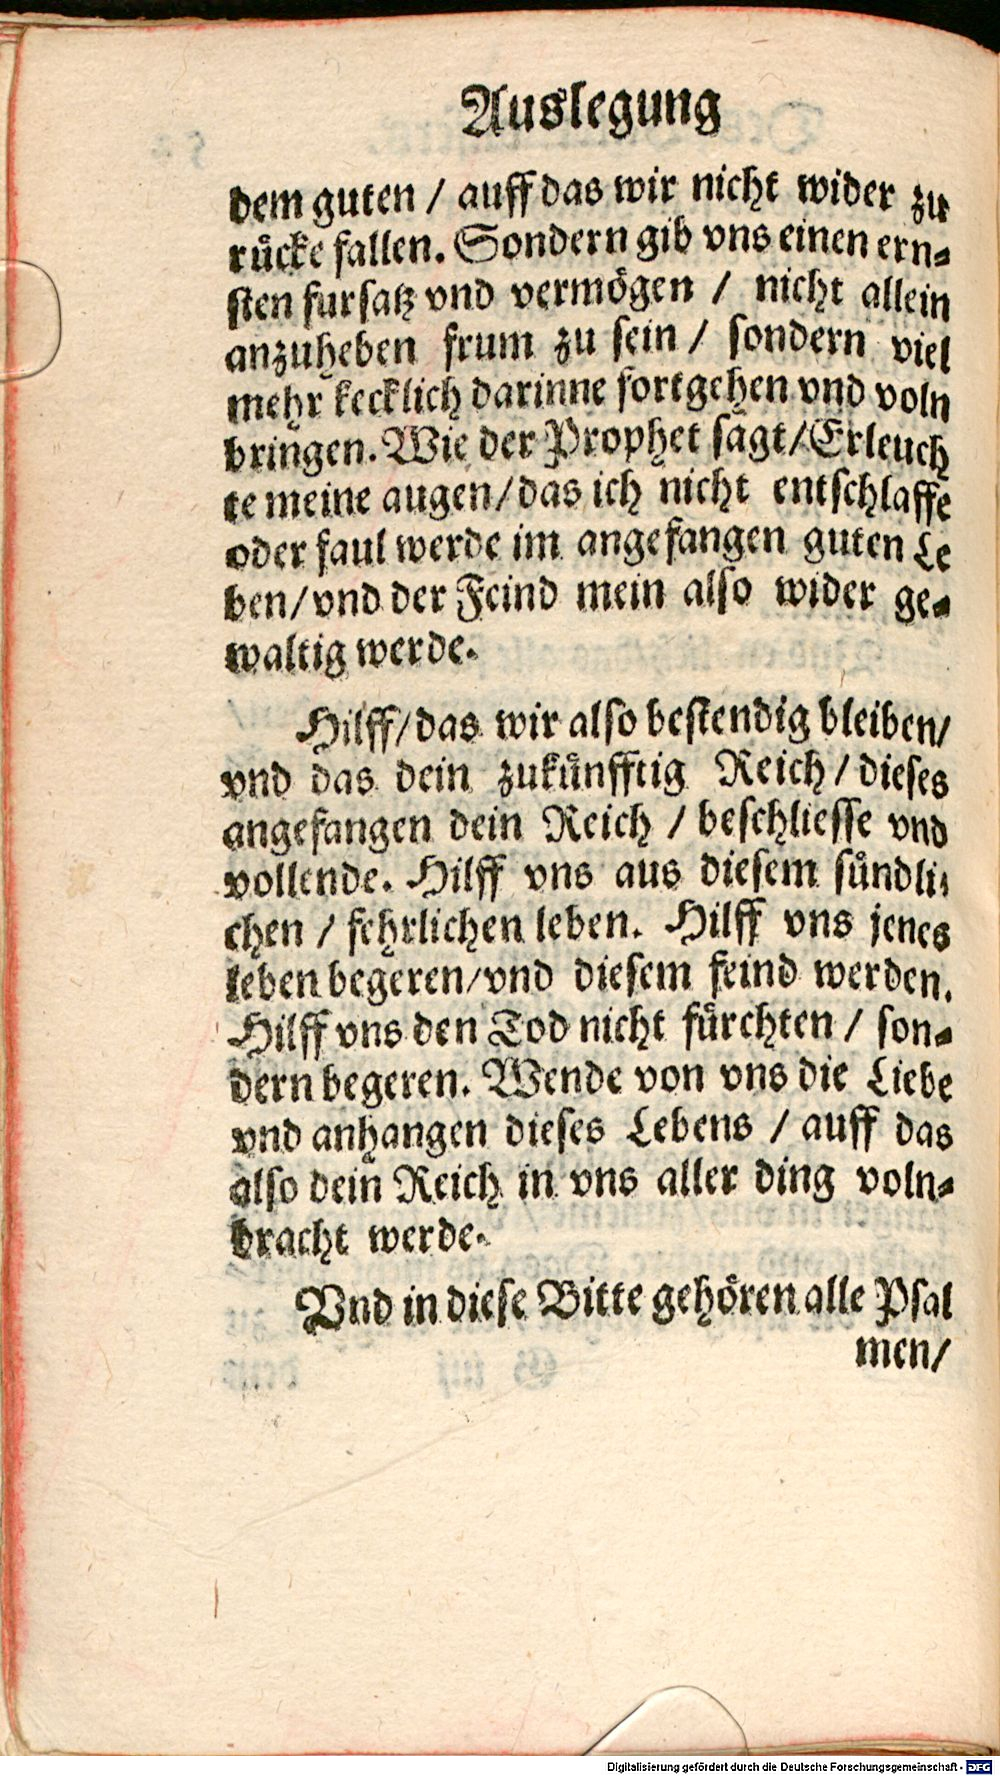 Auslegung
dem guten / auff das wir nicht wider zu
ruͤcke fallen. Sondern gib vns einen ern⸗
sten fursatz vnd vermoͤgen / nicht allein
anzuheben frum zu sein / sondern viel
mehr kecklich darinne fortgehen vnd voln
bringen. Wie der Prophet sagt / Erleuch
te meine augen / das ich nicht entschlaffe
oder faul werde im angefangen guten Le
ben / vnd der Feind mein also wider ge⸗
waltig werde.
Hilff / das wir also bestendig bleiben /
vnd das dein zukuͤnfftig Reich / dieses
angefangen dein Reich / beschliesse vnd
vollende. Hilff vns aus diesem suͤndli⸗
chen / fehrlichen leben. Hilff vns jenes
leben begeren / vnd diesem feind werden.
Hilff vns den Tod nicht fuͤrchten / son⸗
dern begeren. Wende von vns die Liebe
vnd anhangen dieses Lebens / auff das
also dein Reich in vns aller ding voln⸗
bracht werde.
Vnd in diese Bitte gehoͤren alle Psal
men /
Digitalisierung gefördert durch die Deutsche Forschungsgemeinschaft - DFG